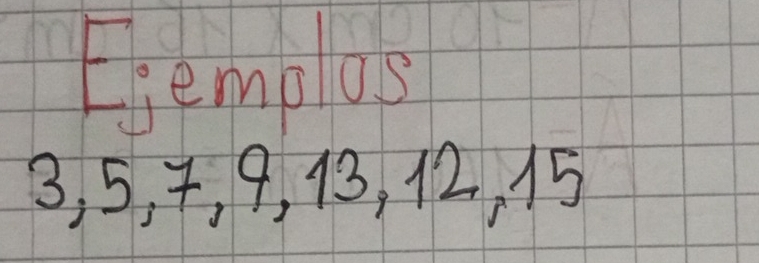 Ejemplos
3, 5, 7, 9, 13, 12, 15